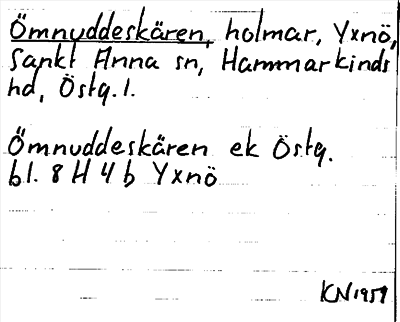 Ömnuddeskären, holmar, Yxnö,
Sankt Anna sn, Hammarkinds
hd, Östg. l.
Ömnuddeskären ek Östg.
bl. 8 H 4 b Yxnö
KN 1959